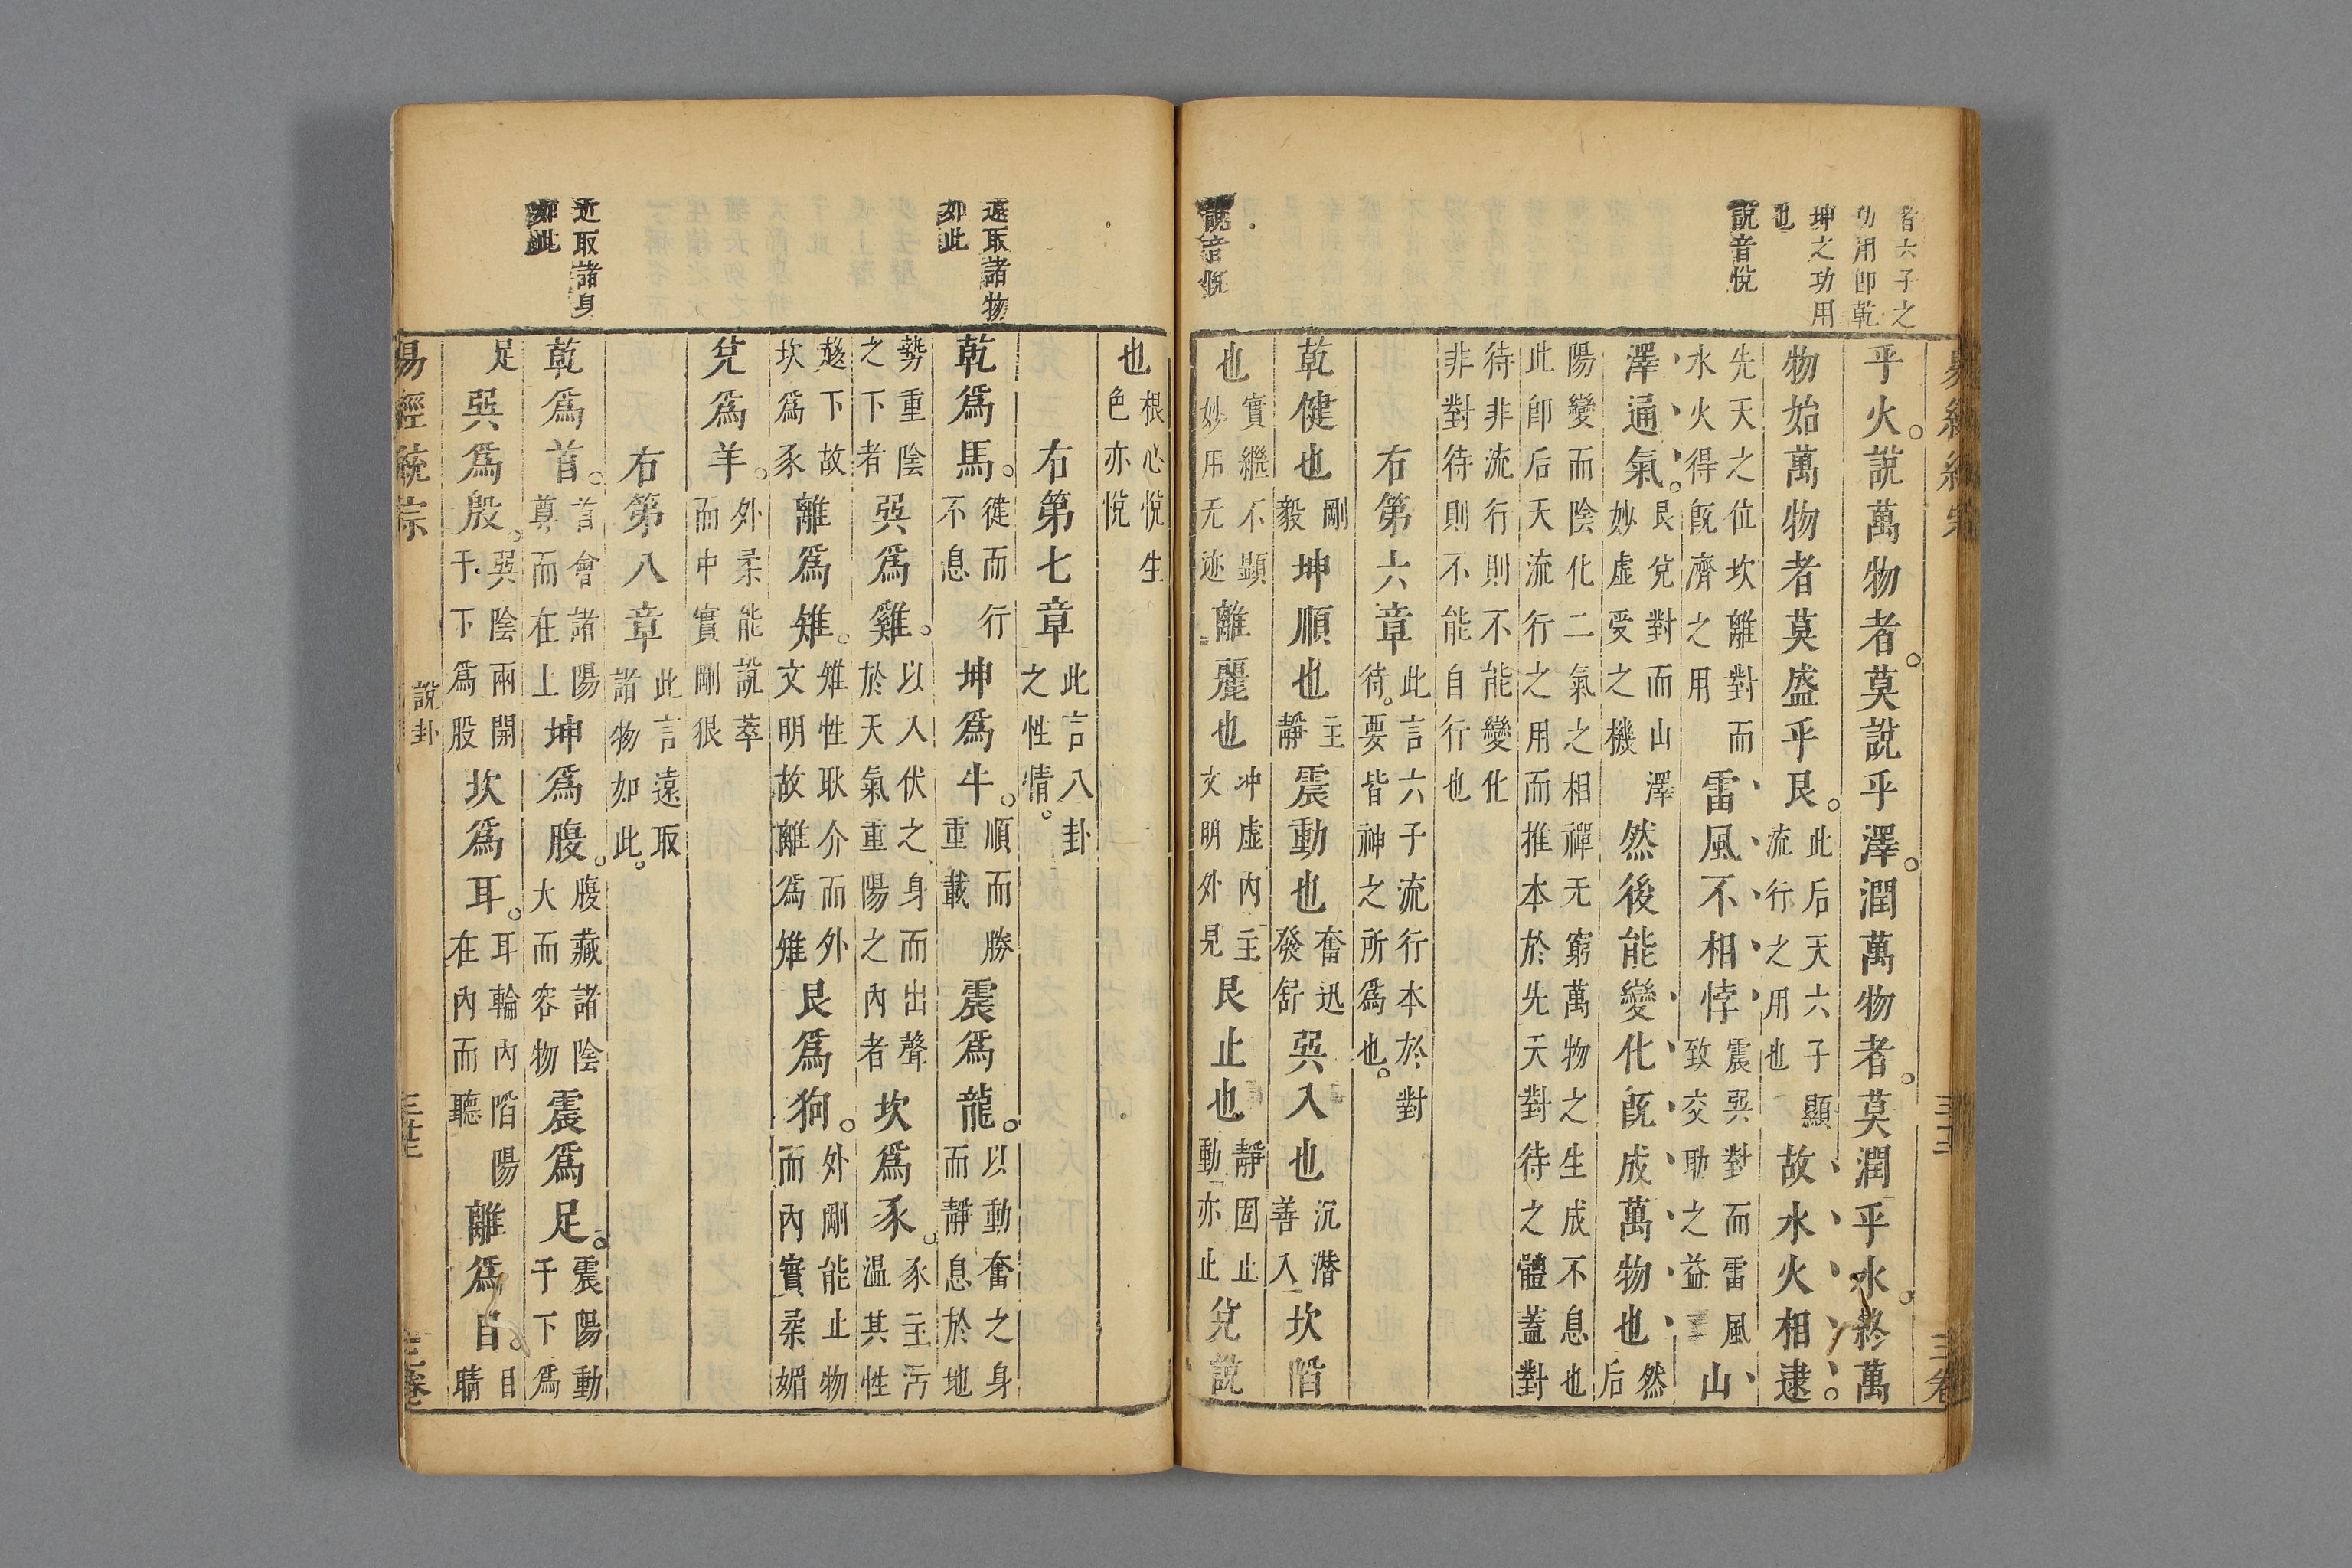 者六子之
功用卽乾
坤之功用
也
說音悅
說音悅
乎火。說萬物者。莫說乎澤。潤萬物者。莫潤乎水。終萬
物始萬物者莫盛乎艮。此后天六子顯流行之用也故水火相逮。
先天之位坎離對而水火得旣濟之用雷風不相悖震巽對而雷風致交助之益山
澤通氣。艮兌對而山澤妙虛受之機然後能變化旣成萬物也然后
陽變而陰化二氣之相禪无窮萬物之生成不息也此卽后天流行之用而推本於先天對待之體蓋對
待非流行則不能變化非對待則不能自行也
右第六章此言六子流行本於對待。要皆神之所爲也。
乾健也剛毅坤順也主靜震動也奮迅發舒巽入也沉潜善入坎陷
也實繼不顯妙用无迹離麗也冲虛內主文明外見艮止也靜固止動亦止兌說
遠取諸物
如此
近取諸身
如此
也根心悅生色亦悅
右第七章此言八卦之性情。
乾爲馬。徤而行不息坤爲牛。順而勝重載震爲龍。以動奮之身而靜息於地
勢重陰之下者巽爲雞。以入伏之身而出聲於天氣重陽之內者坎爲豕。豕主汚温其性
趍下故坎爲豕離爲雉。雉性耿介而外文明故離爲雉艮爲狗。外剛能止物而內實柔媚
兌爲羊。外柔能說萃而中實剛狠
右第八章此言遠取諸物如此。
乾爲首。言會諸陽尊而在上坤爲腹。腹藏諸陰大而容物震爲足。震陽動于下爲
足巽爲股。巽陰兩開于下爲股坎爲耳。耳輪內陷陽在內而聽離爲目。目睛
易經統宗 說卦